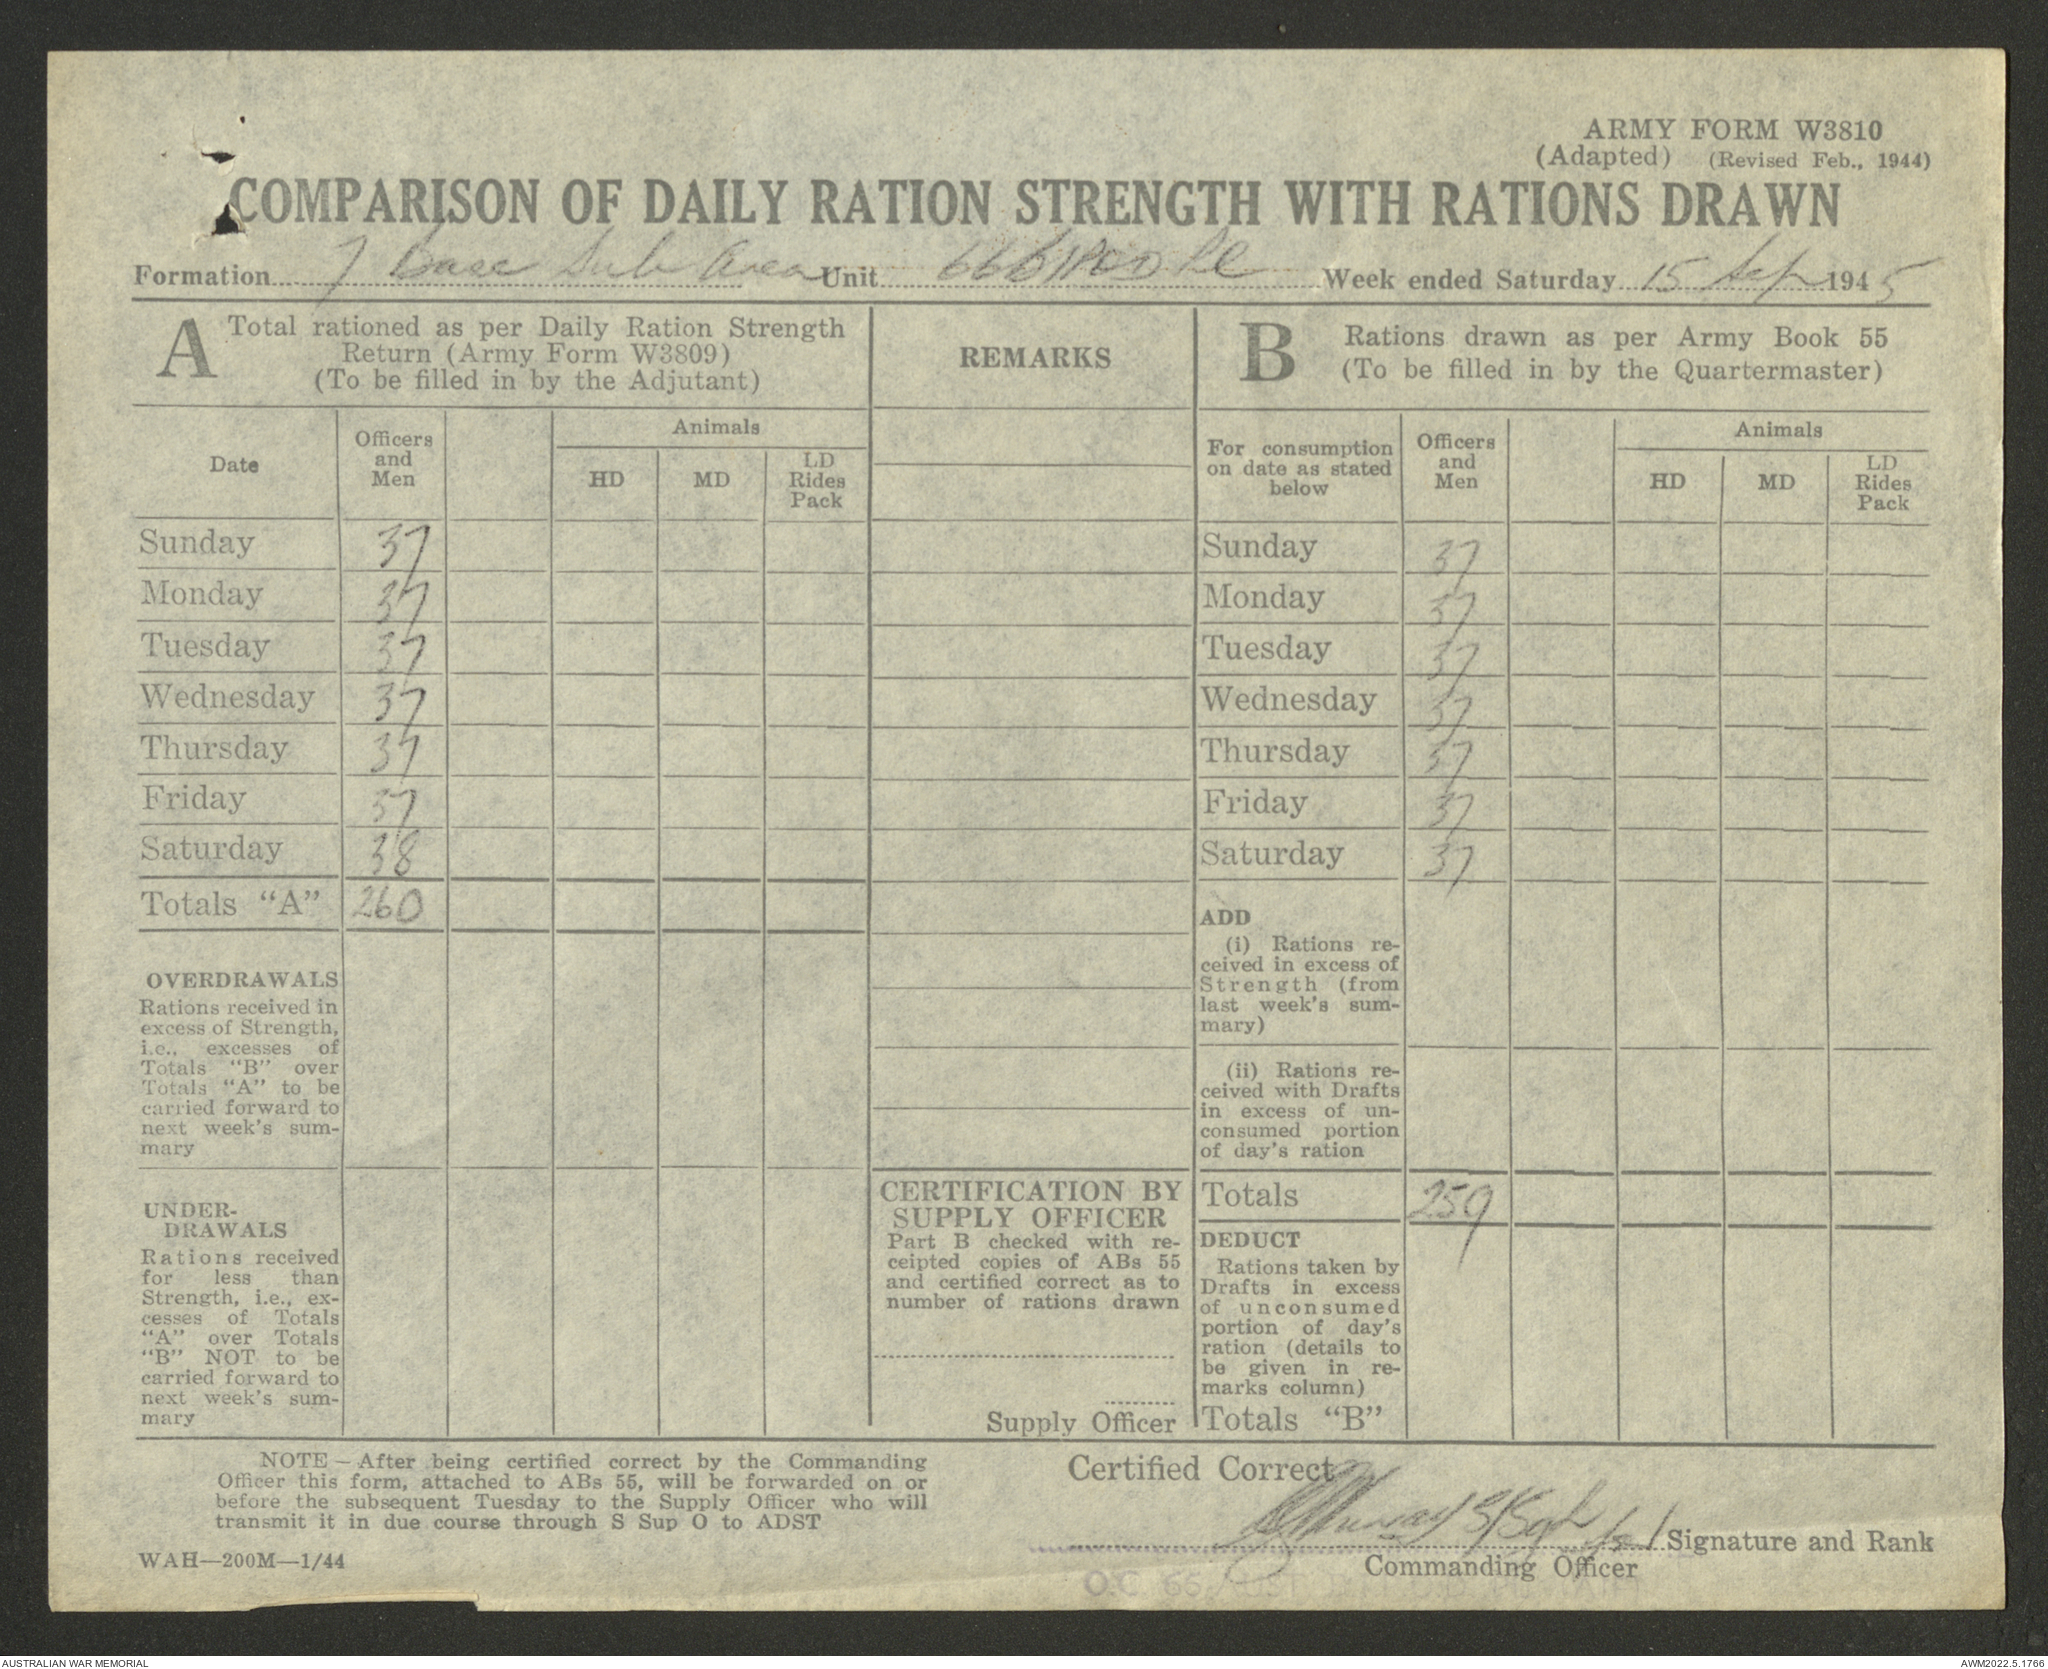 ARMY FORM W3810
(Adapted) (Revised Feb., 1944)
COMPARISON OF DAILY RATION STRENGTH WITH RATIONS DRAWN
Formation 7 Base Sub Area Unit Week ended Saturday 15 Sep 1945
A Total rationed as per Daily Ration Strength
Return (Army Form W3809)
(To be filled in by the Adjutant)
Date
Officers
and
Men
Animals
HD
MD
LD
Rides
Pack
Sunday 37
Monday 37
Tuesday 37
Wednesday 37
Thursday 37
Friday 37
Saturday 38
Totals "A" 260
OVERDRAWALS
Rations received in
excess of Strength,
i.e., excesses of
Totals "B" over
Totals "A" to be
carried forward to
next week's sum-
mary
UNDER-
DRAWALS
Rations received
for less than
Strength, i.e., ex-
cesses of Totals
"A" over Totals
"B" NOT to be
carried forward to
next week's sum-
mary
REMARKS
CERTIFICATION BY
SUPPLY OFFICER
Part B checked with re-
ceipted copies of ABs 55
and certified correct as to
number of rations drawn
Supply Officer
B Rations drawn as per Army Book 55
(To be filled in by the Quartermaster)
For consumption
on date as stated
below
Officers
and
Men
Animals
HD
MD
LD
Rides
Pack
Sunday 37
Monday 37
Tuesday 37
Wednesday 37
Thursday 37
Friday 37
Saturday 37
ADD
(i) Rations re-
ceived in excess of
Strength (from
last week's sum-
mary)
(ii) Rations re-
ceived with Drafts
in excess of un-
consumed portion
of day's ration
Totals 259
DEDUCT
Rations taken by
Drafts in excess
of unconsumed
portion of day's
ration (details to
be given in re-
marks column)
Totals "B"
NOTE — After being certified correct by the Commanding
Officer this form, attached to ABs 55, will be forwarded on or
before the subsequent Tuesday to the Supply Officer who will
transmit it in due course through S Sup O to ADST
WAH—200M—1/44
Certified Correct
Murray S/Sgt Signature and Rank
Commanding Officer
O.C
AUSTRALIAN WAR MEMORIAL
AWM2022.5.1766